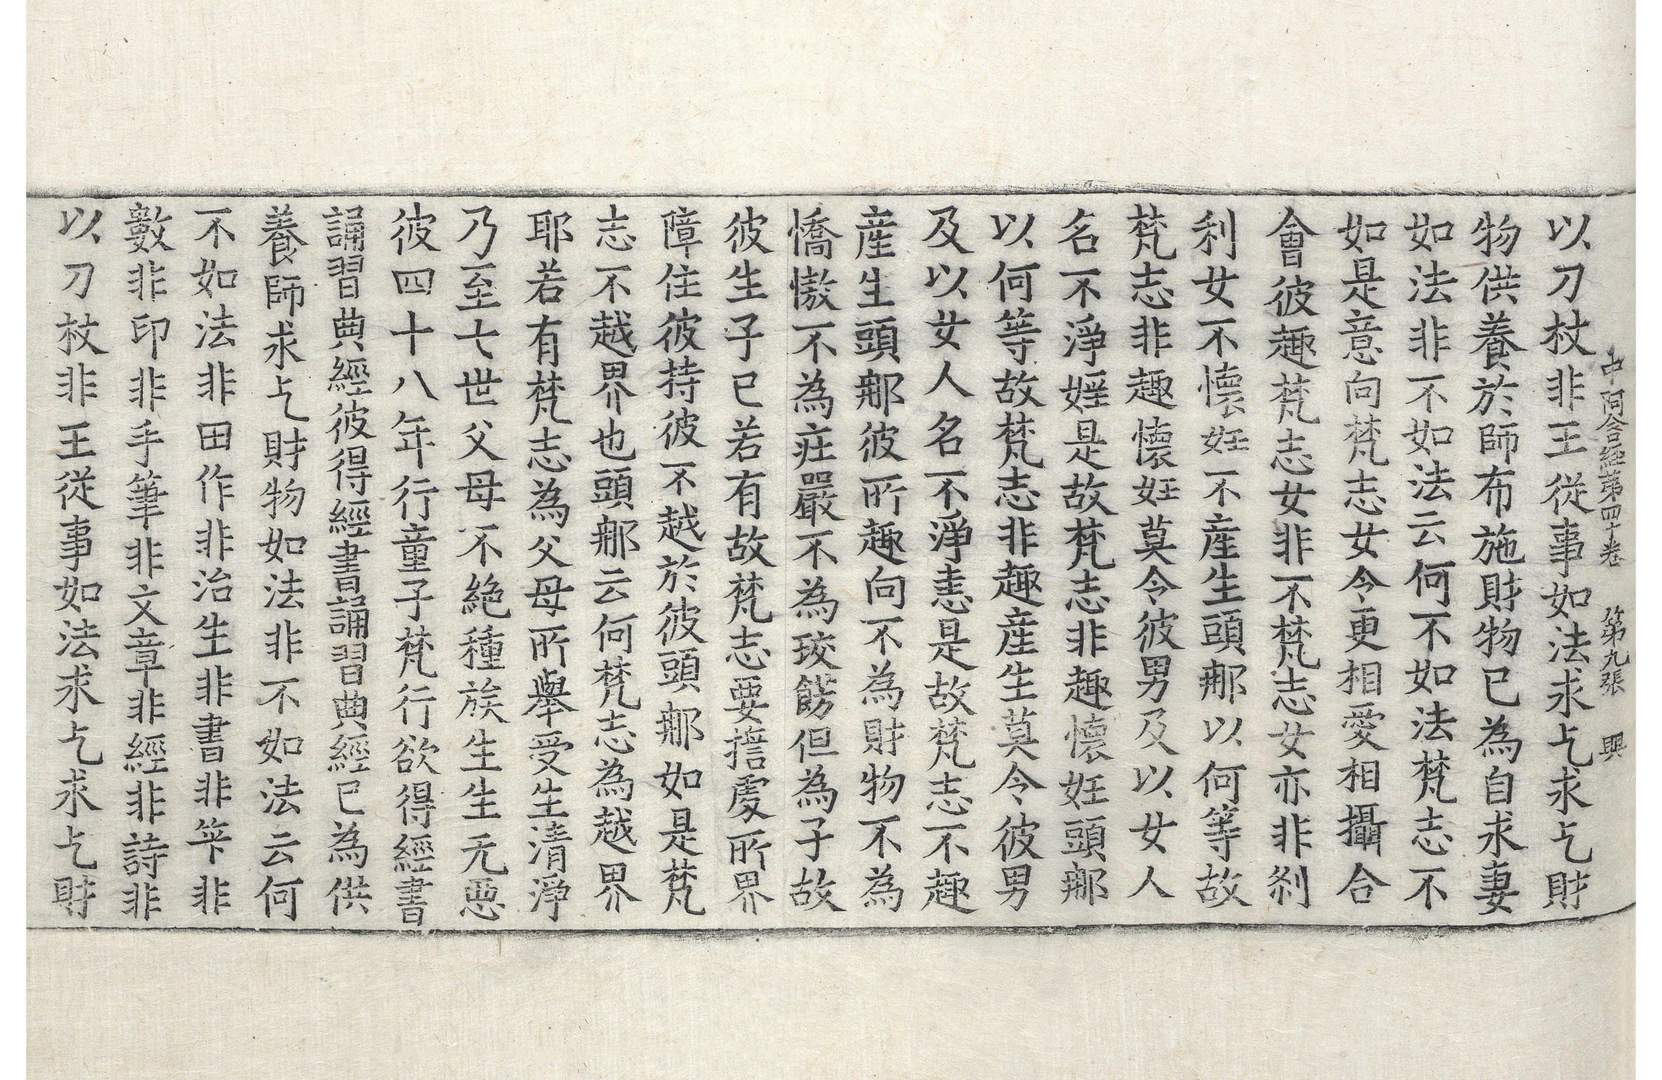 中阿含経第四十卷　第九張　興
以刀杖非王従事如法求乞求乞財
物供養於師布施財物已為自求妻
如法非不如法云何不如法梵志不
如是意向梵志女令更相愛相攝合
會彼趣梵志女非不梵志女亦非刹
利女不懷妊不産生頭郍以何等故
梵志非趣懷妊莫令彼男及以女人
名不淨婬是故梵志非趣懷妊頭郍
以何等故梵志非趣産生莫令彼男
及以女人名不淨恚是故梵志不趣
産生頭郍彼所趣向不為財物不為
憍慠不為莊嚴不為挍餝但為子故
彼生子已若有故梵志要擔處所界
障住彼持彼不越於彼頭郍如是梵
志不越界也頭郍云何梵志為越界
耶若有梵志為父母所舉受生清淨
乃至七世父母不絶種族生生无惡
彼四十八年行童子梵行欲得經書
誦習典經彼得經書誦習典經已為供
養師求乞財物如法非不如法云何
不如法非田作非治生非書非筭非
數非印非手筆非文章非經非詩非
以刀杖非王從事如法求乞求乞財